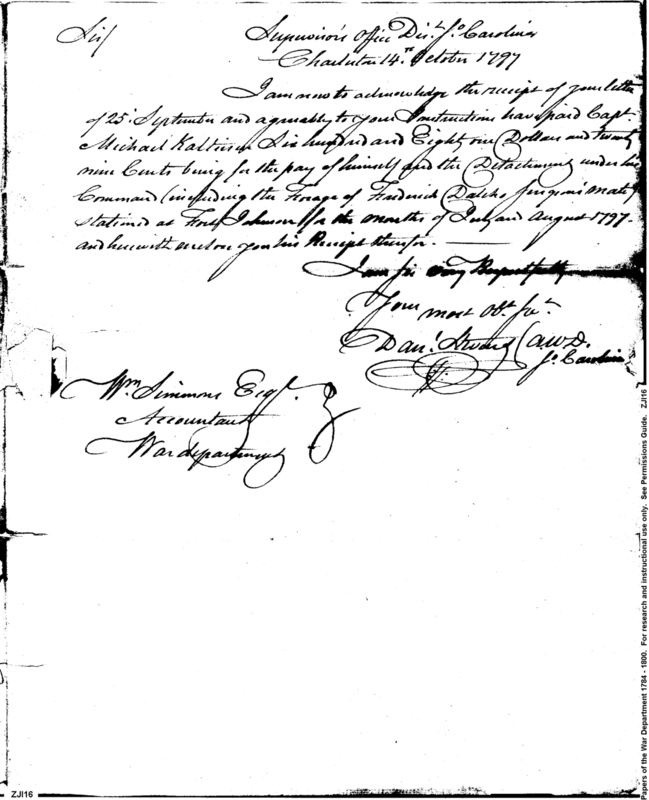 Sir/ Supervisor's Office Dist. So. Carolina
Charleston 14th October 1797
I am now to acknowledge the receipt of your letter
of 25th September and agreeably to your Instructions have paid Capt.
Michael Kalteisen Six hundred and Eighty one Dollars and twenty
nine Cents being for the pay of himself and the Detachment under his
Command (including the Forage of Frederick Dalcho surgeons mate)
stationed at Fort Johnson for the months of July and August 1797.
and herewith enclose you his Receipt therefor.
I am Sir very Respectfully
Your most Obt. St.
Danl. Stevens A.W.D.
So. Carolina
Wm. Simmons Esqr.
Accountant
War department
ZJI16
Papers of the War Department 1784 - 1800. For research and instructional use only. See Permissions Guide. ZJI16